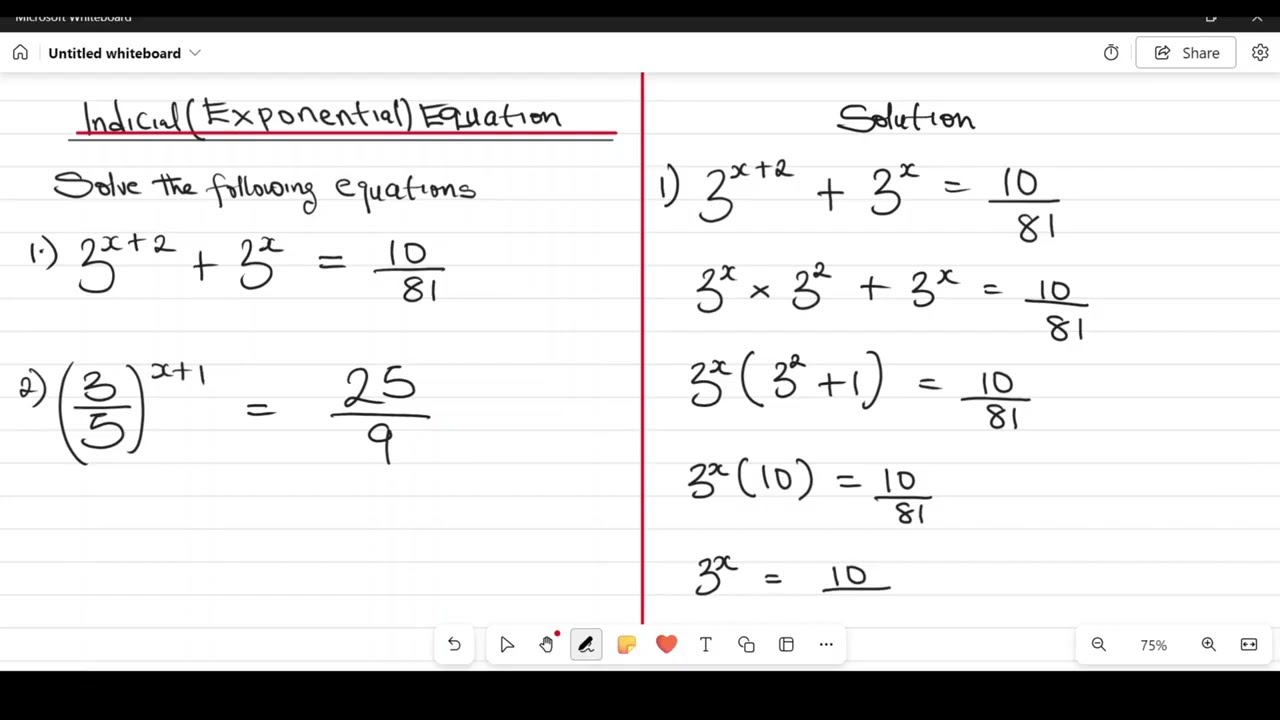 Microsoft Whiteboard
Untitled whiteboard
Share
Indicial (Exponential) Equation
Solve the following equations
1.) 3^{x+2} + 3^x = 10/81
2) (3/5)^{x+1} = 25/9
Solution
1) 3^{x+2} + 3^x = 10/81
3^x × 3^2 + 3^x = 10/81
3^x (3^2 + 1) = 10/81
3^x (10) = 10/81
3^x = 10
T
75%